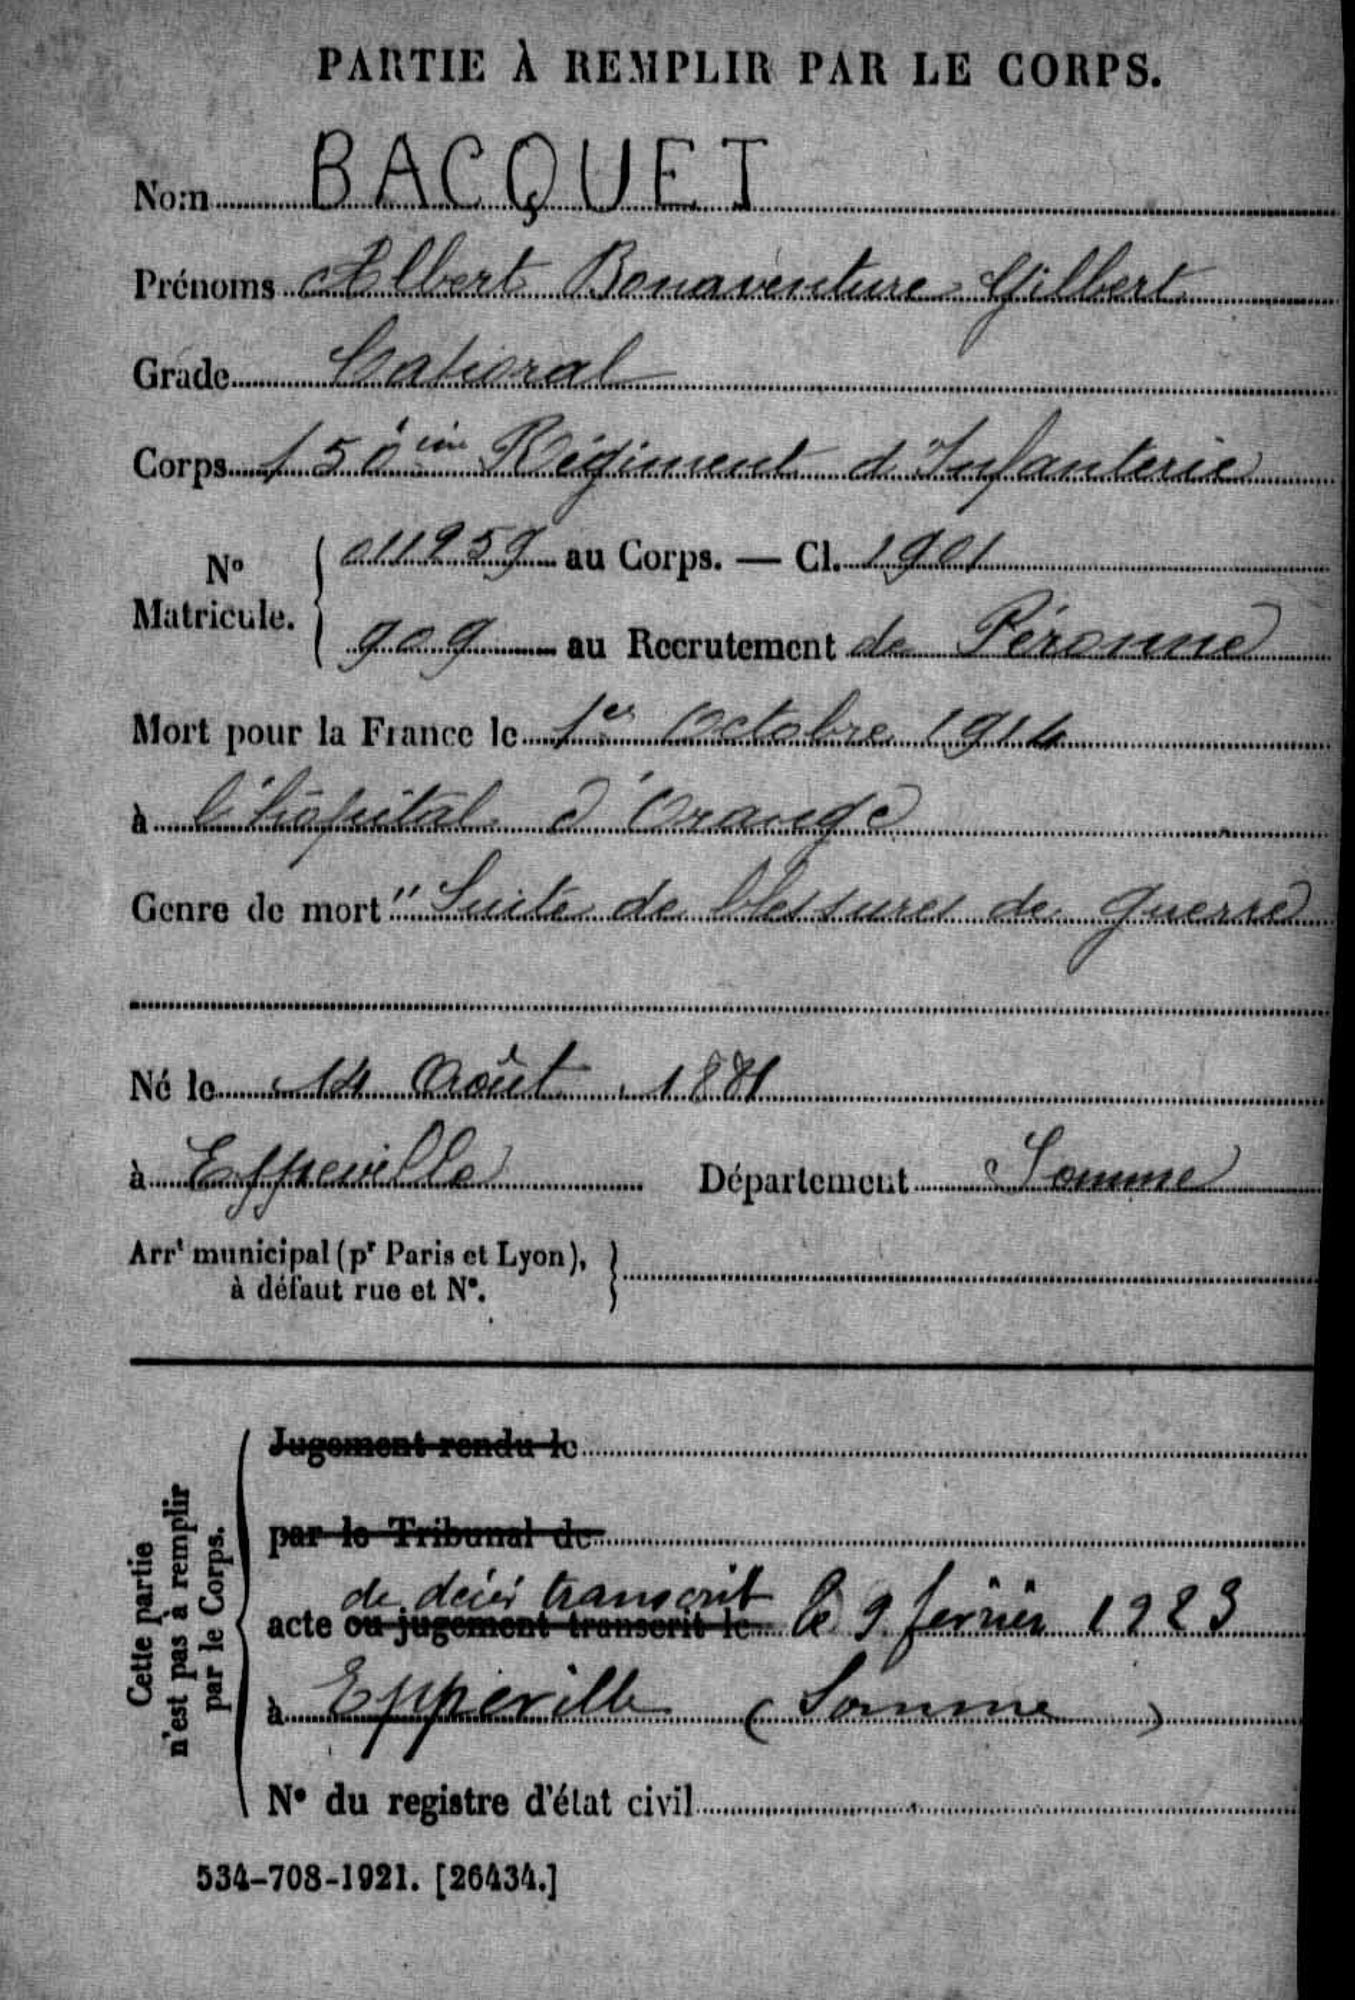 PARTIE À REMPLIR PAR LE CORPS.
Nom BACQUET
Prénoms Albert Bonaventure Gilbert
Grade Caporal
Corps 150ème Régiment d'Infanterie
N° Matricule. 011959 au Corps. — Cl. 1901
909 au Recrutement de Péronne
Mort pour la France le 1er Octobre 1914
à l'hôpital d'Orange
Genre de mort "Suite de blessures de guerre
Né le 14 Août 1881
à Eppeville Département Somme
Arrt municipal (pr Paris et Lyon),
à défaut rue et N°.
Cette partie
n'est pas à remplir
par le Corps.
Jugement rendu le
par le Tribunal de
de décès transcrit
acte ou jugement transcrit le le 9 février 1923
à Eppeville (Somme)
N° du registre d'état civil
534-708-1921. [26434.]